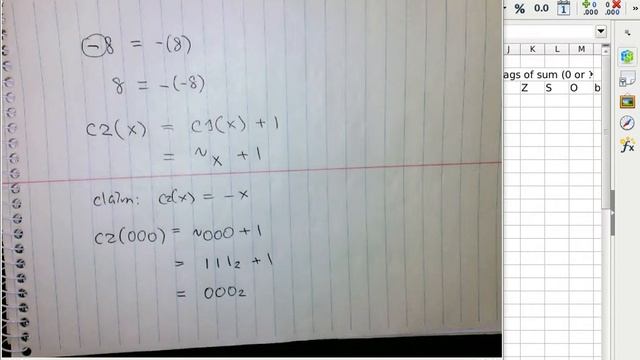 -8 = -(8)
8 = -(-8)
c2(x) = c1(x) + 1
= ~x + 1
claim: c2(x) = -x
c2(000) = ~000 + 1
= 111₂ + 1
= 000₂
% 0.0 1 .000 .000 »
J K L M
ags of sum (0 or
Z S O b